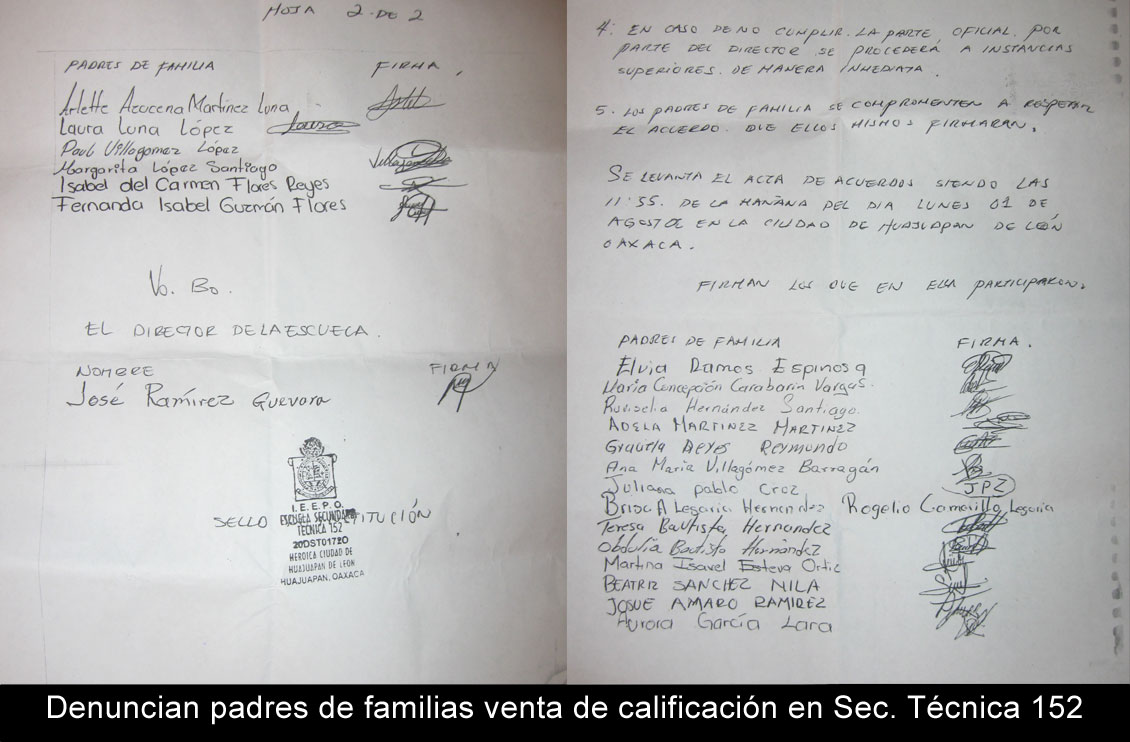 HOJA 2 DE 2
PADRES DE FAMILIA FIRMA.
Arlette Azucena Martínez Luna
Laura Luna López
Paul Villagomez López
Margarita López Santiago
Isabel del Carmen Flores Reyes
Fernanda Isabel Guzmán Flores
Vo. Bo.
EL DIRECTOR DE LA ESCUELA.
NOMBRE FIRMA
José Ramírez Guevara
I.E.E.P.O.
SELLO INSTITUCIÓN
ESCUELA SECUNDARIA
TÉCNICA 152
20DST0172O
HEROICA CIUDAD DE
HUAJUAPAN DE LEON
HUAJUAPAN, OAXACA
4. EN CASO DE NO CUMPLIR. LA PARTE OFICIAL. POR
PARTE DEL DIRECTOR SE PROCEDERÁ A INSTANCIAS
SUPERIORES. DE MANERA INMEDIATA.
5. LOS PADRES DE FAMILIA SE COMPROMENTEN A RESPETAR
EL ACUERDO. QUE ELLOS MISMOS FIRMARAN.
SE LEVANTA EL ACTA DE ACUERDOS SIENDO LAS
11:55. DE LA MAÑANA DEL DIA LUNES 01 DE
AGOSTO EN LA CIUDAD DE HUAJUAPAN DE LEÓN
OAXACA.
FIRMAN LOS QUE EN ELLA PARTICIPARON.
PADRES DE FAMILIA FIRMA.
Elvia Ramos Espinosa
Maria Concepción Carabarin Vargas.
Ruviselia Hernández Santiago.
ADELA MARTINEZ MARTINEZ
Graciela REYES REYMUNDO
Ana María Villagómez Barragán
Juliana pablo Cruz JPZ
Brisa A Lesaria Hernandez Rogelio Camarillo Lesaria
Teresa Bautista Hernandez
Obdulia Bautista Hernández
Martina Isavel Esteva Ortiz
BEATRIZ SANCHEZ NILA
JOSUE AMARO RAMIREZ
Aurora García Lara
Denuncian padres de familias venta de calificación en Sec. Técnica 152